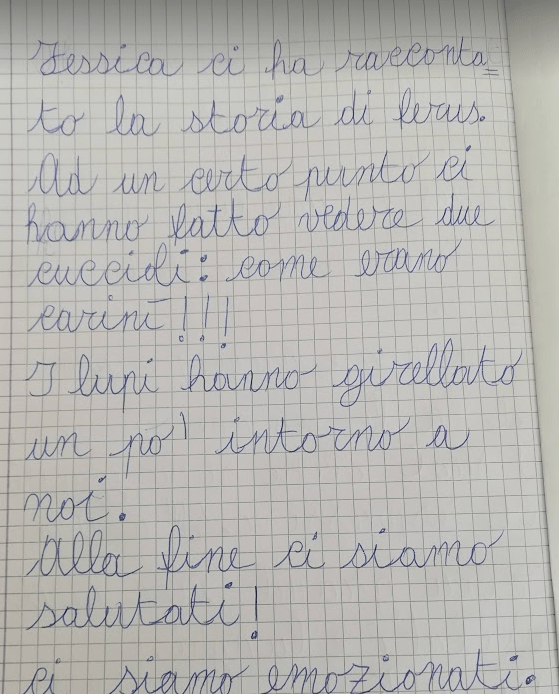 Jessica ci ha racconta=
to la storia di ferus.
Ad un certo punto ci
hanno fatto vedere due
cuccioli: come erano
carini!!!
I lupi hanno girellato
un po' intorno a
noi.
Alla fine ci siamo
salutati!
ci siamo emozionati.